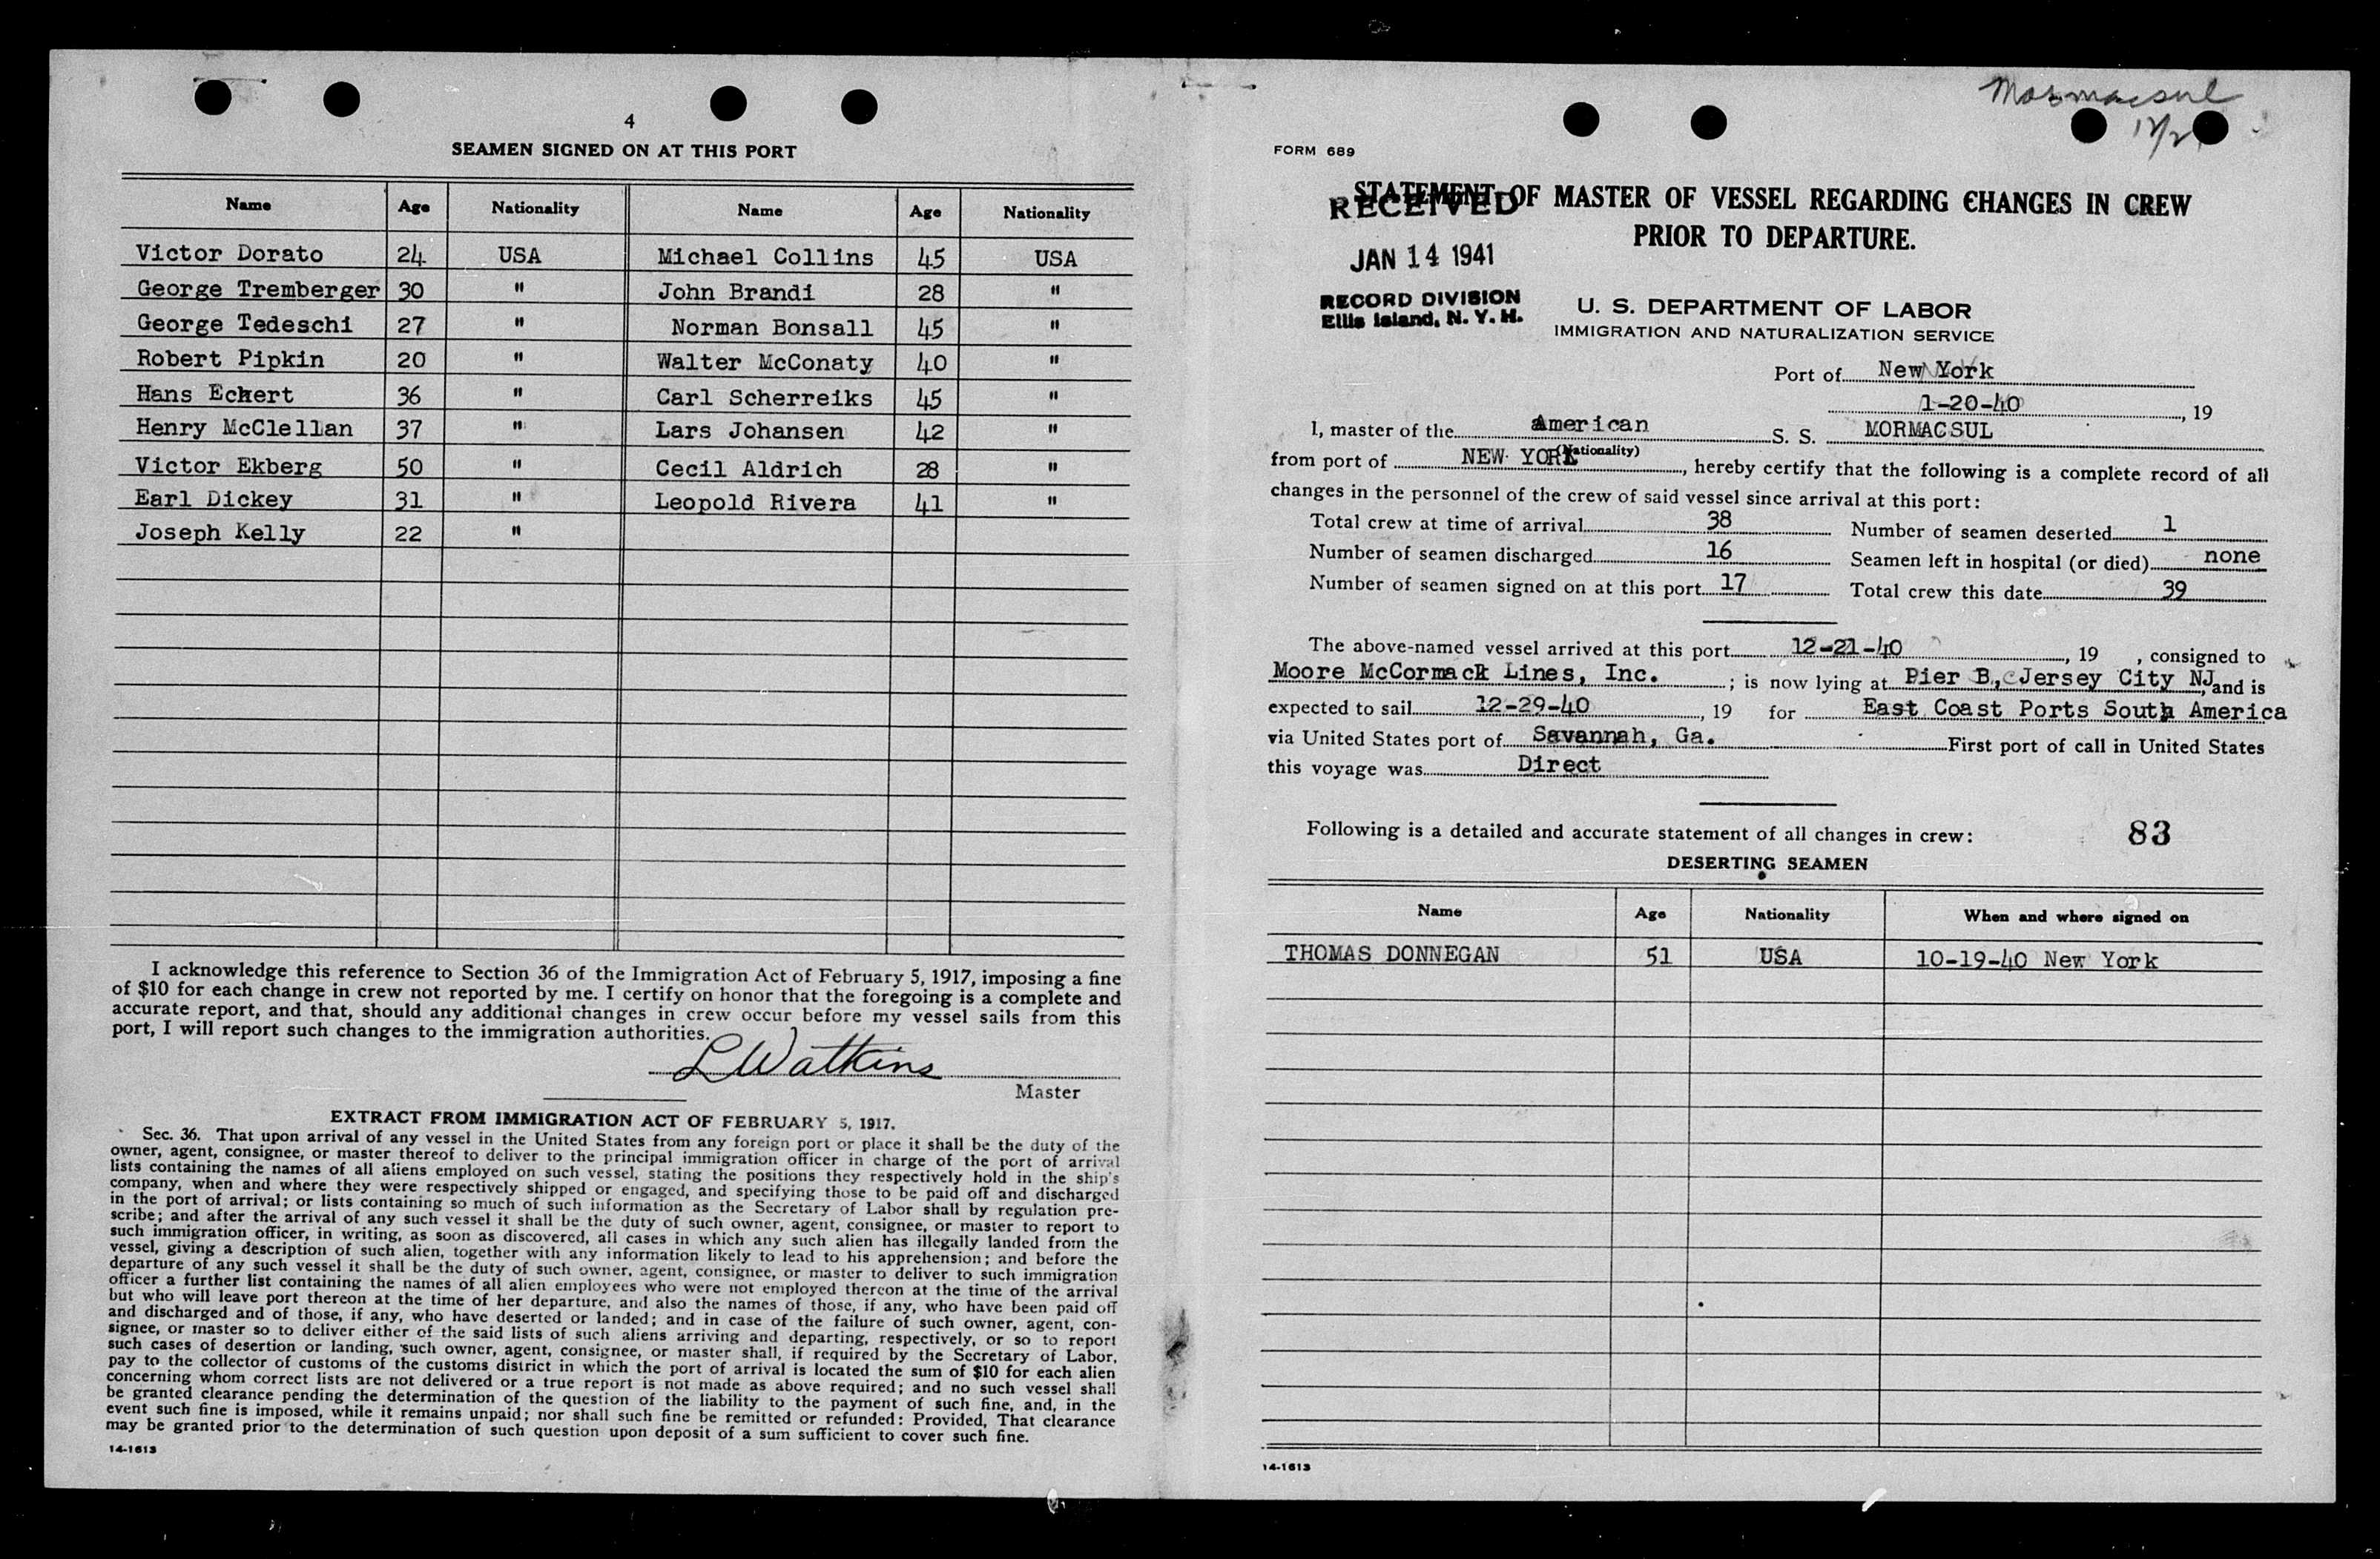 4
SEAMEN SIGNED ON AT THIS PORT
Name Age Nationality Name Age Nationality
Victor Dorato 24 USA Michael Collins 45 USA
George Tremberger 30 " John Brandi 28 "
George Tedeschi 27 " Norman Bonsall 45 "
Robert Pipkin 20 " Walter McConaty 40 "
Hans Eckert 36 " Carl Scherreiks 45 "
Henry McClellan 37 " Lars Johansen 42 "
Victor Ekberg 50 " Cecil Aldrich 28 "
Earl Dickey 31 " Leopold Rivera 41 "
Joseph Kelly 22 "
I acknowledge this reference to Section 36 of the Immigration Act of February 5, 1917, imposing a fine
of $10 for each change in crew not reported by me. I certify on honor that the foregoing is a complete and
accurate report, and that, should any additional changes in crew occur before my vessel sails from this
port, I will report such changes to the immigration authorities.
L Watkins
Master
EXTRACT FROM IMMIGRATION ACT OF FEBRUARY 5, 1917.
Sec. 36. That upon arrival of any vessel in the United States from any foreign port or place it shall be the duty of the
owner, agent, consignee, or master thereof to deliver to the principal immigration officer in charge of the port of arrival
lists containing the names of all aliens employed on such vessel, stating the positions they respectively hold in the ship's
company, when and where they were respectively shipped or engaged, and specifying those to be paid off and discharged
in the port of arrival; or lists containing so much of such information as the Secretary of Labor shall by regulation pre-
scribe; and after the arrival of any such vessel it shall be the duty of such owner, agent, consignee, or master to report to
such immigration officer, in writing, as soon as discovered, all cases in which any such alien has illegally landed from the
vessel, giving a description of such alien, together with any information likely to lead to his apprehension; and before the
departure of any such vessel it shall be the duty of such owner, agent, consignee, or master to deliver to such immigration
officer a further list containing the names of all alien employees who were not employed thereon at the time of the arrival
but who will leave port thereon at the time of her departure, and also the names of those, if any, who have been paid off
and discharged and of those, if any, who have deserted or landed; and in case of the failure of such owner, agent, con-
signee, or master so to deliver either of the said lists of such aliens arriving and departing, respectively, or so to report
such cases of desertion or landing, such owner, agent, consignee, or master shall, if required by the Secretary of Labor,
pay to the collector of customs of the customs district in which the port of arrival is located the sum of $10 for each alien
concerning whom correct lists are not delivered or a true report is not made as above required; and no such vessel shall
be granted clearance pending the determination of the question of the liability to the payment of such fine, and, in the
event such fine is imposed, while it remains unpaid; nor shall such fine be remitted or refunded: Provided, That clearance
may be granted prior to the determination of such question upon deposit of a sum sufficient to cover such fine.
14-1613
Mormacsul
12/21
FORM 689
STATEMENT OF MASTER OF VESSEL REGARDING CHANGES IN CREW
PRIOR TO DEPARTURE.
RECEIVED
JAN 14 1941
RECORD DIVISION
Ellis Island, N. Y. H.
U. S. DEPARTMENT OF LABOR
IMMIGRATION AND NATURALIZATION SERVICE
Port of New York
1-20-40, 19
I, master of the American S. S. MORMACSUL
(Nationality)
from port of NEW YORK, hereby certify that the following is a complete record of all
changes in the personnel of the crew of said vessel since arrival at this port:
Total crew at time of arrival 38 Number of seamen deserted 1
Number of seamen discharged 16 Seamen left in hospital (or died) none
Number of seamen signed on at this port 17 Total crew this date 39
The above-named vessel arrived at this port 12-21-40, 19 , consigned to
Moore McCormack Lines, Inc. ; is now lying at Pier B, Jersey City NJ, and is
expected to sail 12-29-40, 19 for East Coast Ports South America
via United States port of Savannah, Ga. First port of call in United States
this voyage was Direct
Following is a detailed and accurate statement of all changes in crew: 83
DESERTING SEAMEN
Name Age Nationality When and where signed on
THOMAS DONNEGAN 51 USA 10-19-40 New York
14-1613